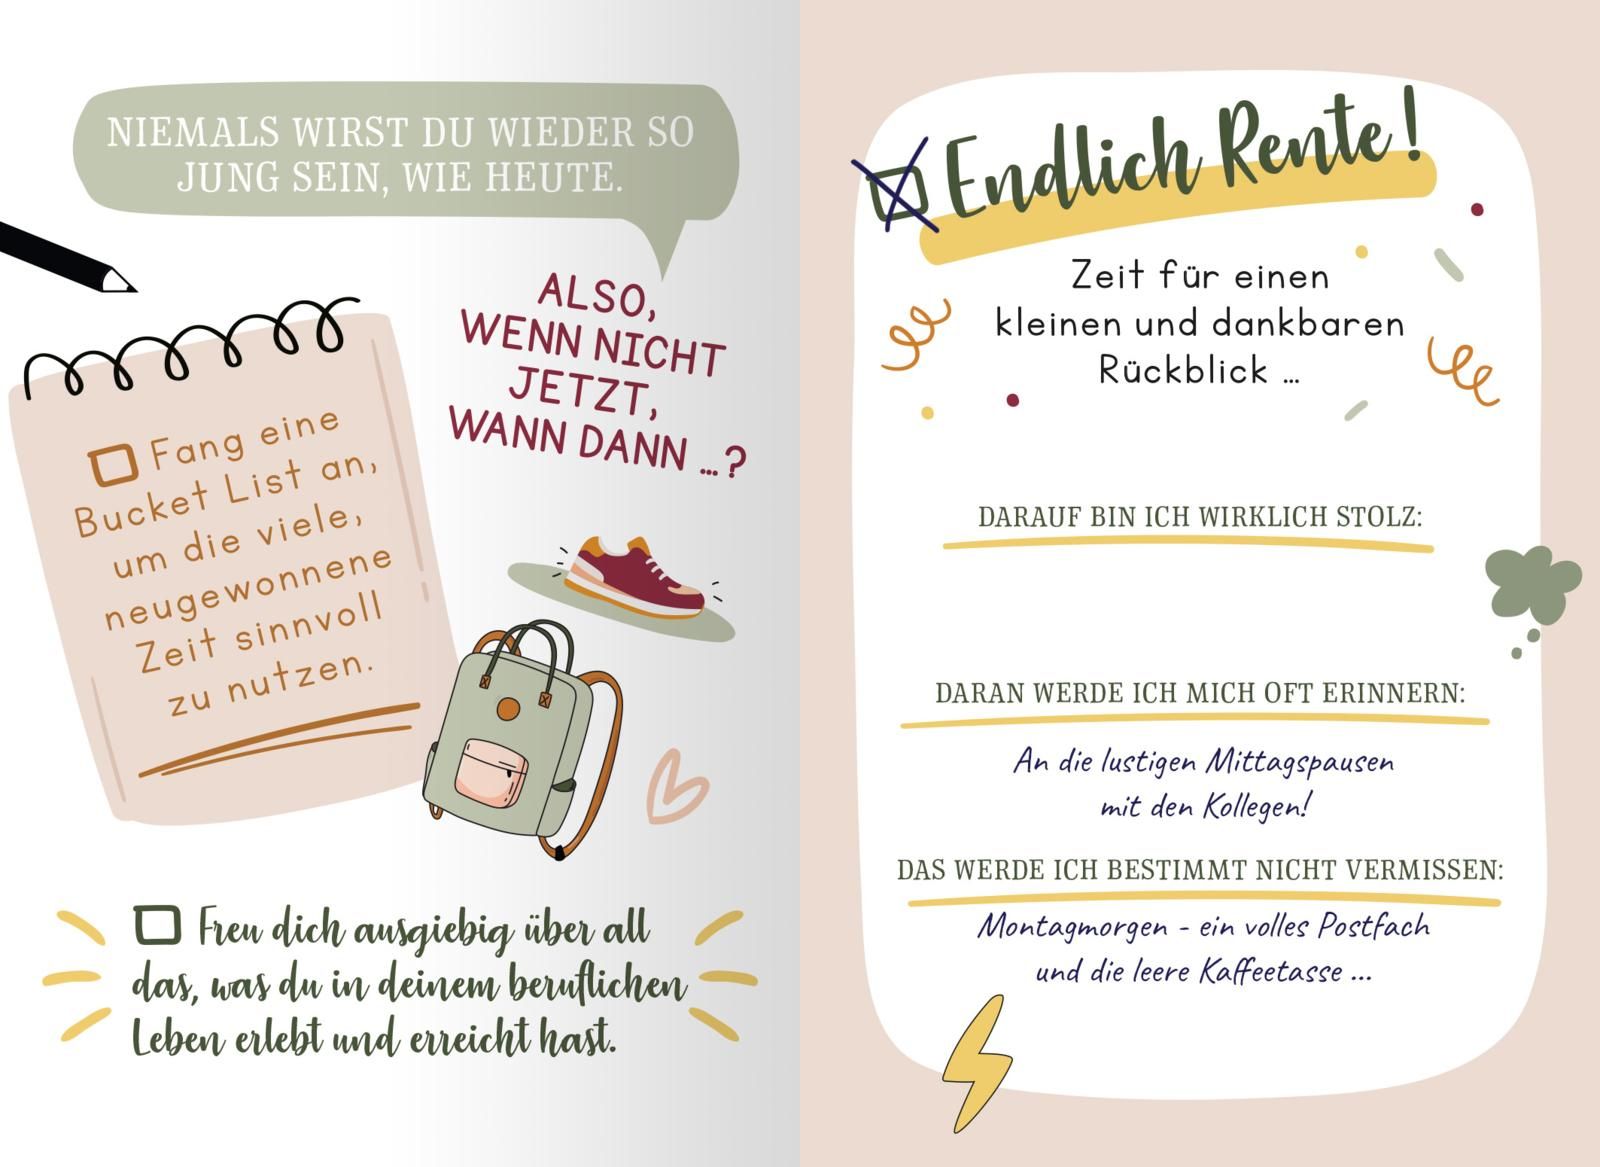 NIEMALS WIRST DU WIEDER SO
JUNG SEIN, WIE HEUTE.
ALSO,
WENN NICHT
JETZT,
WANN DANN ...?
Fang eine
Bucket List an,
um die viele,
neugewonnene
Zeit sinnvoll
zu nutzen.
Freu dich ausgiebig über all
das, was du in deinem beruflichen
Leben erlebt und erreicht hast.
Endlich Rente!
Zeit für einen
kleinen und dankbaren
Rückblick ...
DARAUF BIN ICH WIRKLICH STOLZ:
DARAN WERDE ICH MICH OFT ERINNERN:
An die lustigen Mittagspausen
mit den Kollegen!
DAS WERDE ICH BESTIMMT NICHT VERMISSEN:
Montagmorgen - ein volles Postfach
und die leere Kaffeetasse ...